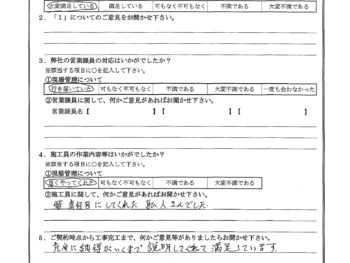 大変満足している 満足している 可もなく不可もなく 不満である 大変不満である
2．「1」についてのご意見をお聞かせ下さい。
3．弊社の営業課員の対応はいかがでしたか？
※該当する項目に○を記入して下さい。
①現場管理について
行き届いていた 可もなく不可もなく 不満である 大変不満である 一度も会わなかった
②営業課員に関して、何かご意見があればお聞かせ下さい。
営業課員名【 】【 】【 】
4．施工員の作業内容等はいかがでしたか？
※該当する項目に○を記入して下さい。
①現場管理について
良くやってくれた 可もなく不可もなく 不満である 大変不満である
②施工員に関して、何かご意見があればお聞かせ下さい。
皆真面目にしてくれた 職人さんでした
5．ご契約時点から工事完工まで、何かご意見等がありましたらお聞かせ下さい。
納得がいくまで説明してくれて満足しています